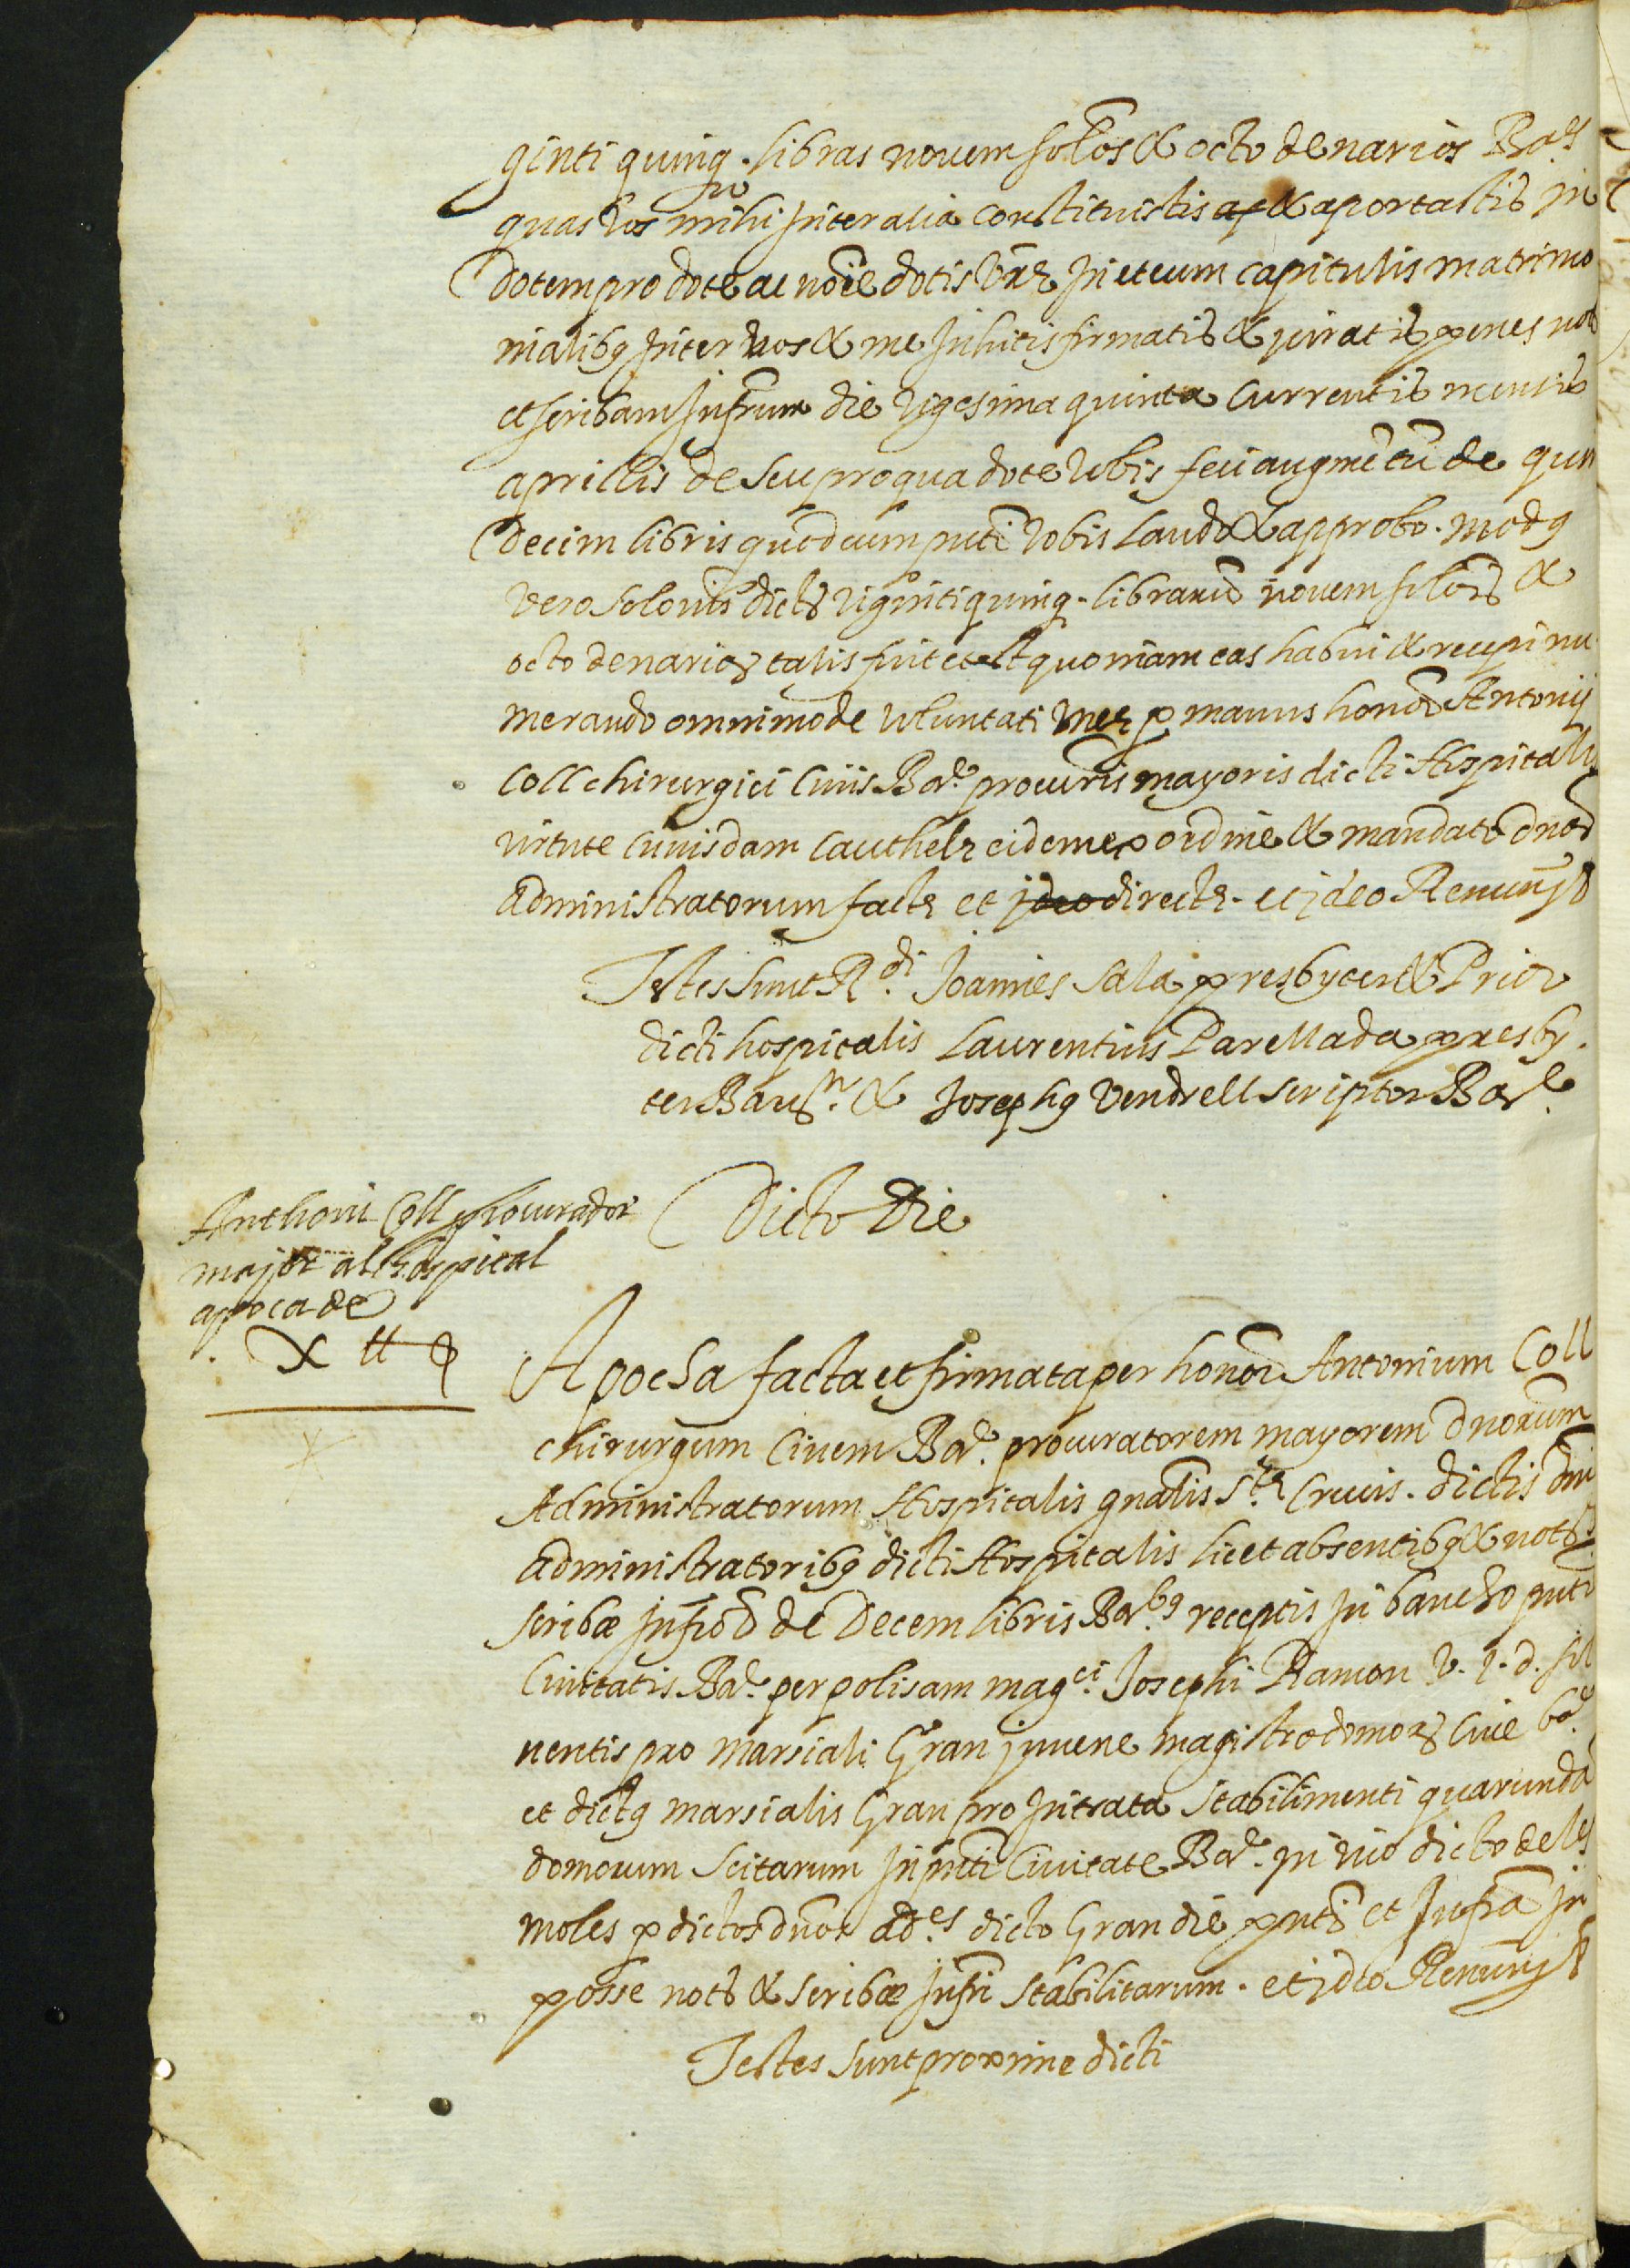 ginti quinq. libras novem solos & octo denarios Ba.es
quas vos mihi inter alia constituistis & aportastis in
dotem pro dote ac noie dotis vrae in et cum capitulis matrimo
nialibq inter vos & me initis firmatis & juratis penes not
et scribam infrum die vigesima quinta currentis mensis
aprillis de seu pro qua dote vobis feci augmetu de quin
decim libris quod cum pnti vobis laudo & approbo. modq
vero solonis dictar viginti quinq. librarum novem solor &
octo denarior talis fuit et est quoniam eas habui & recepi nu
merando omnimode voluntati mee p manus honor Antonij
Coll chirurgici civis Bar. procuris mayoris dicti Hospitalis
virtute cuiusdam cauthele eidem ex ordine & mandato dnor
administratorum facte et ideo directe. et ideo Renuny &
Testes sunt R.di Joannes Sala presbyter & Prior
dicti hospitalis Laurentius Parellada presby.
ter & Josephq Vendrell scriptor Bar.e
Dicto die
Anthoni Coll procurador
major al hospital
apoca de
X ll
Apocha facta et firmata per honor Antonium Coll
chirurgum Civem Bar. procuratorem mayorem dnorum
Administratorum Hospitalis gnalis S.te Crucis. dictis dni
administratoribq dicti Hospitalis licet absentibq & not
scribæ infro de Decem libris Bar.bq receptis in bancho pnti
Civitatis Bar. per polisam mag.ci Josephi Ramon V. J. d. sil
nentis pro Marsiali Gran juvene magistro domor Cive bar
et dictq marsialis Gran pro intrata stabilimenti quarunda
domorum scitarum in pnti Civitate Bar. in vico dicto de les
moles p dictos dnos ad.es dicto Gran die pnti et infra in
posse not & scribæ infri stabilitarum. et ideo Renuny &
Testes sunt proxime dicti